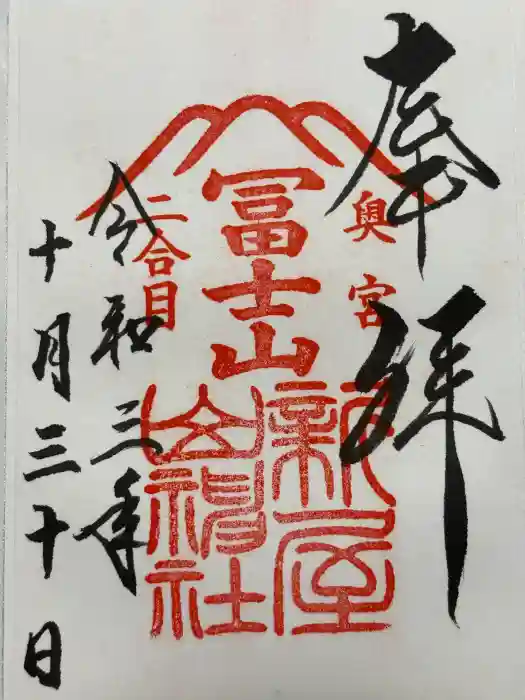 奉拝
奥宮
冨士山
二合目
新屋
山神社
令和三年
十月三十日